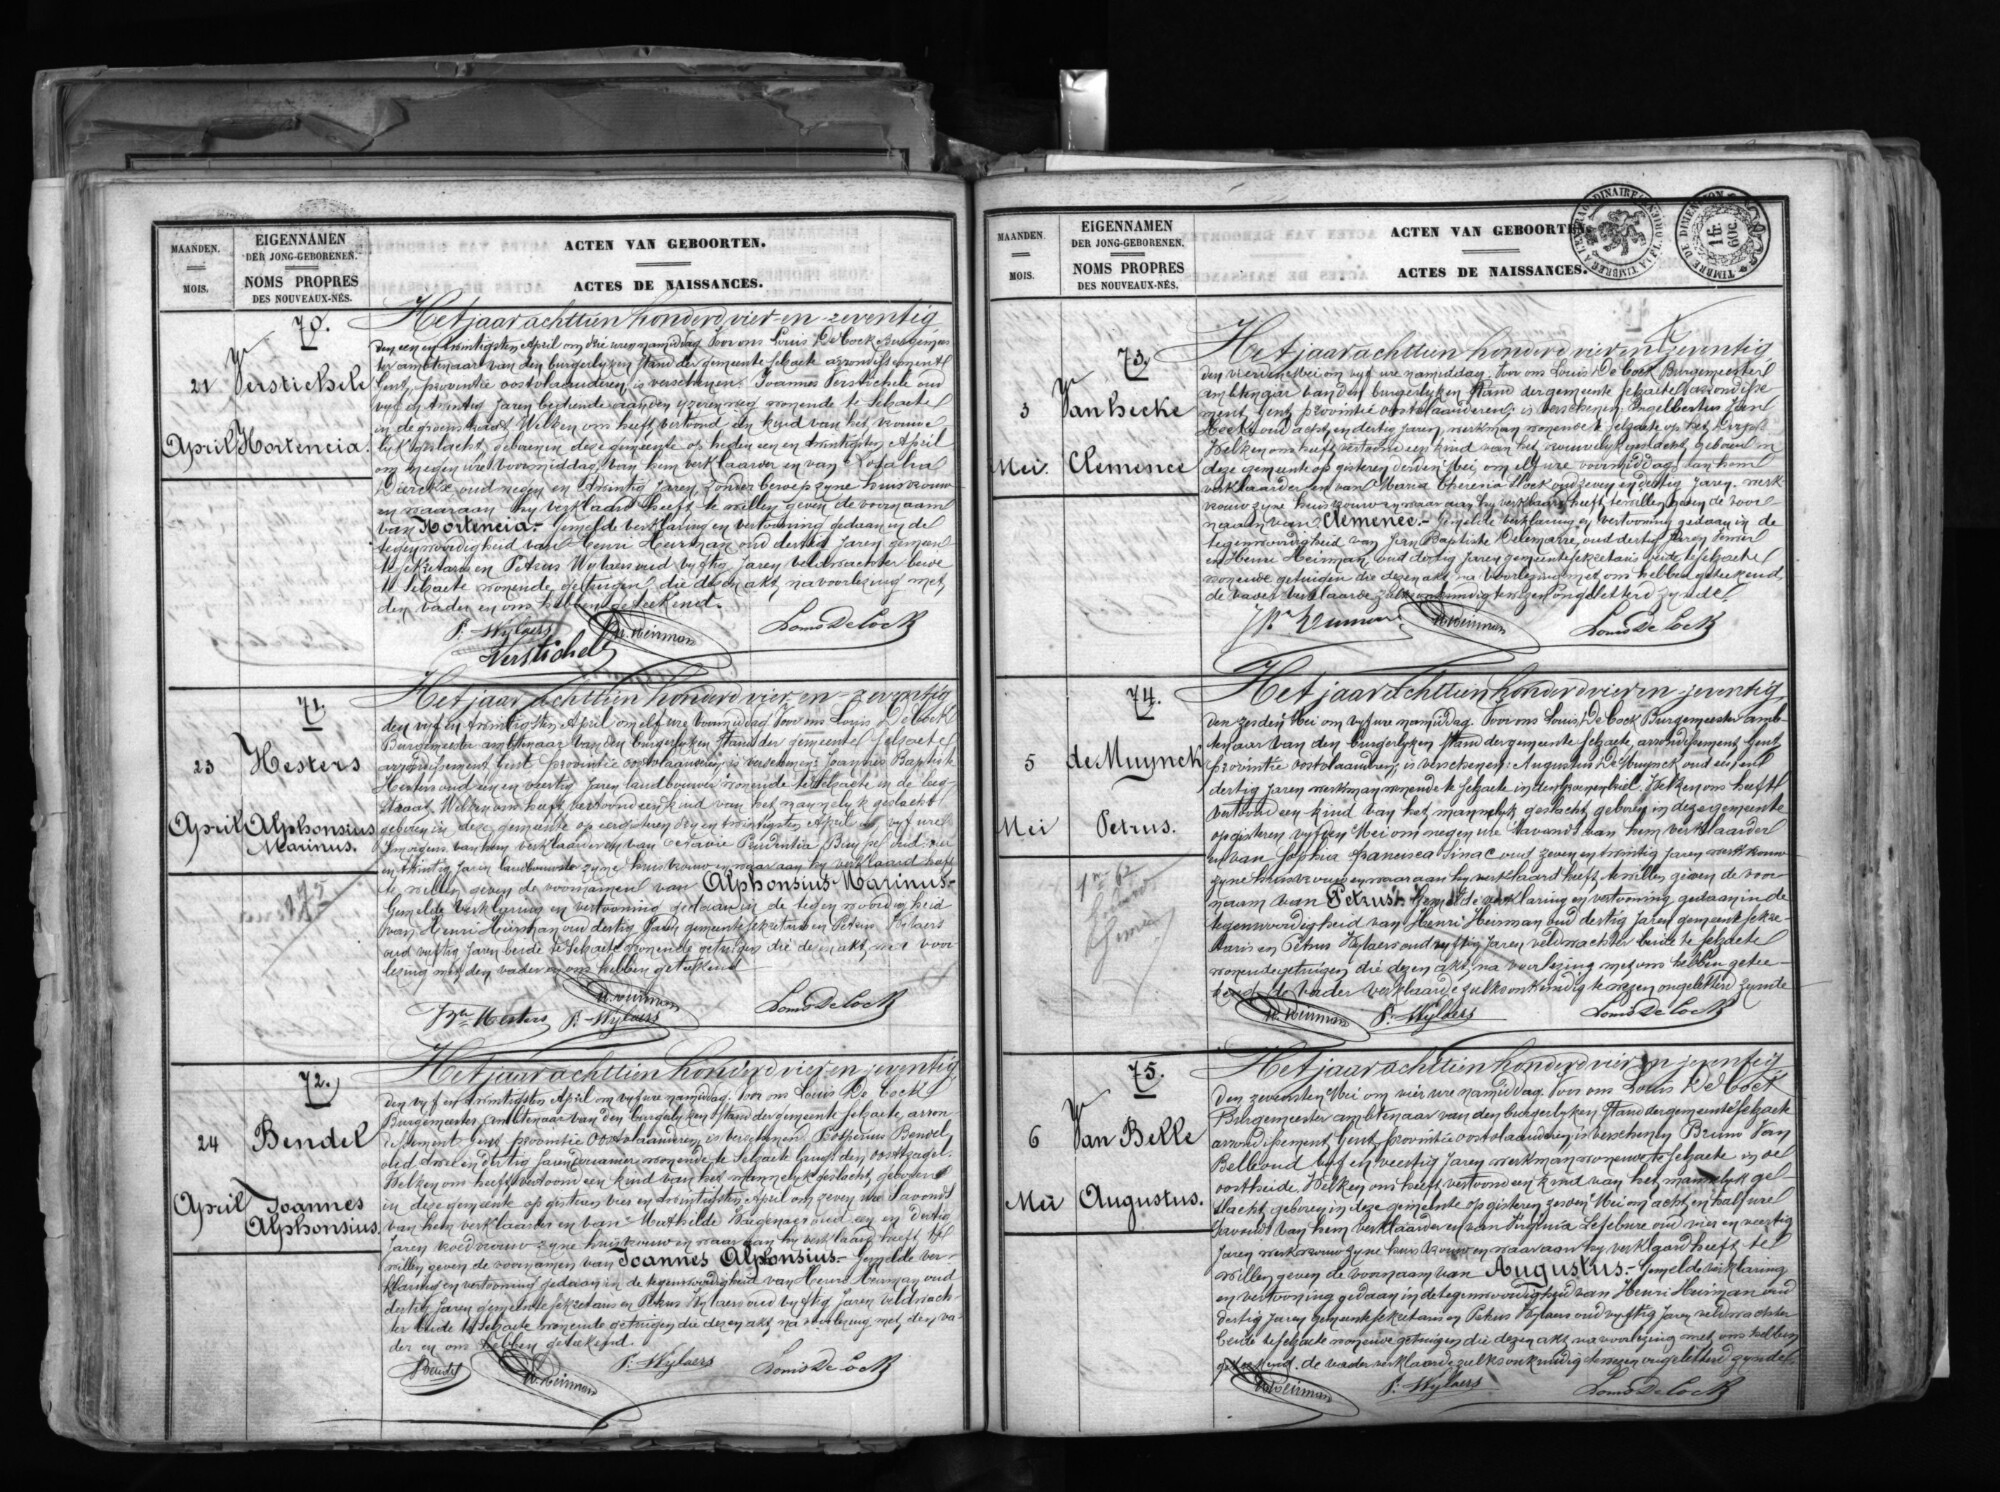 MAANDEN.
MOIS.
EIGENNAMEN
DER JONG-GEBORENEN.
NOMS PROPRES
DES NOUVEAUX-NÉS.
ACTEN VAN GEBOORTEN.
ACTES DE NAISSANCES.
70.
21
April
Verstichele
Hortencia.
Het jaar achttien honderd vier-en-zeventig
den een en twintigsten April om drie uren namiddag Voor ons Louis De Cock Burgemees
ter ambtenaar van den burgerlyken stand der gemeente Selzaete arrondissement
Gent, provintie oostvlaanderen, is verschenen: Joannes Verstichele oud
vyf en twintig Jaren bediende aan den yzerenweg wonende te Selzaete
in de groenstraat Welken ons heeft vertoond een kind van het vrouwe
lyk geslacht, geboren in deze gemeente op heden een en twintigsten April
om negen ure voormiddag, van hem verklaarder en van Rosalia
Dierckx oud negen en twintig Jaren, zonder beroep zyne huisvrouw
en waaraan hy verklaard heeft te willen geven de voornaam
van Hortencia.- Gemelde verklaring en vertooning gedaan in de
tegenwoordigheid van Henri Heirman oud dertig Jaren gemeen
te sekretaris en Petrus Wylaers oud vyftig Jaren veldwachter beide
te Selzaete wonende getuigen, die dezen akt, na voorlezing met
den vader en ons hebben geteekend.
P. Wylaers H. Heirman Louis De Cock
Verstichel
71.
23
April
Hesters
Alphonsius
Marinus.
175
Het jaar achttien honderd vier en-zeventig
den vyf en twintigsten April om elf ure voormiddag Voor ons Louis De Cock
Burgemeester ambtenaar van den burgerlyken stand der gemeente Selzaete
arrondissement Gent provintie oostvlaanderen, is verschenen: Joannes Baptiste
Hesters oud een en veertig Jaren landbouwer wonende te Selzaete in de leeg-
straat Welken ons heeft vertoond een kind van het mannelyk geslacht
geboren in deze gemeente op eergisteren dry en twintigsten April om vyf ure
smorgens van hem verklaarder en van Octavie Prudentia oud vier
en twintig Jaren landbouwster zyne huisvrouw en waaraan hy verklaard heeft
te willen geven de voornamen van Alphonsius Marinus-
Gemelde verklaring en vertooning gedaan in de tegenwoordigheid
van Henri Heirman oud dertig Jaren gemeente sekretaris en Petrus Wylaers
oud vyftig Jaren beide te Selzaete wonende getuigen die dezen akt, na voor
lezing met den vader en ons hebben geteekend
H. Heirman Louis De Cock
Hesters P. Wylaers
72.
24
April
Bendel
Joannes
Alphonsius.
Het jaar achttien honderd vier en zeventig
den vyf en twintigsten April om vyf ure namiddag. Voor ons Louis De Cock
Burgemeester, ambtenaar van den burgerlyken stand der gemeente Selzaete, arron-
dissement Gent provintie Oostvlaanderen, is verschenen: Prosperius Bendel,
oud twee en dertig Jaren wonende te Selzaete
Welken ons heeft vertoond een kind van het mannelyk geslacht, geboren
in deze gemeente op gisteren vier en twintigsten April om zeven ure savonds
van hem verklaarder en van Mathilde oud een en dertig
Jaren voedvrouw zyne huisvrouw en waaraan hy verklaard heeft te
willen geven de voornamen van Joannes Alphonsius.- Gemelde ver-
klaring en vertooning gedaan in de tegenwoordigheid van Henri Heirman oud
dertig Jaren gemeente sekretaris en Petrus Wylaers oud vyftig Jaren veldwach-
ter beide te Selzaete wonende getuigen die dezen akt, na voorlezing met den va-
der en ons hebben geteekend.
Bendel H. Heirman P. Wylaers Louis De Cock
MAANDEN.
MOIS.
EIGENNAMEN
DER JONG-GEBORENEN.
NOMS PROPRES
DES NOUVEAUX-NÉS.
ACTEN VAN GEBOORTEN.
ACTES DE NAISSANCES.
TIMBRE DE DIMENSION
1 fr. 60c.
73.
3
Mei.
Van hecke
Clemence
Het jaar achttien honderd vier en zeventig,
den vierden Mei om vyf ure namiddag, Voor ons Louis De Cock Burgemeester
ambtenaar van den burgerlyken stand der gemeente Selzaete, arrondisse-
ment Gent, provintie Oostvlaanderen, is verschenen: Engelbertus Van
Hecke oud acht en dertig Jaren, werkman wonende te Selzaete op het dorp
Welken ons heeft vertoond een kind van het vrouwelyk geslacht, geboren in
deze gemeente op gisteren derden Mei, om elf ure voormiddag, van hem
verklaarder en van Maria Theresia Hock oud zeven en dertig Jaren, werk
vrouw zyne huisvrouw en waaraan hy verklaard heeft te willen geven de voor
naam van Clemence.- Gemelde verklaring en vertooning gedaan in de
tegenwoordigheid van Jan Baptiste oud dertig Jaren
en Henri Heirman, oud dertig Jaren gemeente sekretaris beide te Selzaete
wonende getuigen die dezen akt na voorlezing met ons hebben geteekend,
de vader verklaarde zulks onkundig te wezen ongeletterd zynde
H. Heirman Louis De Cock
74.
5
Mei
de Muynck
Petrus.
Het jaar achttien honderd vier en zeventig
den zesden Mei om vyf ure namiddag. Voor ons Louis De Cock Burgemeester amb-
tenaar van den burgerlyken stand der gemeente Selzaete, arrondissement Gent
provintie oostvlaanderen, is verschenen: Augustus De Muynck oud een en
dertig Jaren werkman wonende te Selzaete in den Welken ons heeft
vertoond een kind van het mannelyk geslacht, geboren in deze gemeente
op gisteren vyfden Mei om negen ure savonds van hem verklaarder
en van Sophia Francisca Sinac oud zeven en twintig Jaren werkvrouw
zyne huisvrouw en waaraan hy verklaard heeft, te willen geven de voor-
naam van Petrus.- Gemelde verklaring en vertooning gedaan in de
tegenwoordigheid van Henri Heirman oud dertig Jaren gemeente sekre-
taris en Petrus Wylaers oud vyftig Jaren veldwachter beide te Selzaete
wonende getuigen die dezen akt, na voorlezing met ons hebben getee-
kend, de vader verklaarde zulks onkundig te wezen ongeletterd zynde
H. Heirman P. Wylaers Louis De Cock
75.
6
Mei
Van Belle
Augustus.
Het jaar achttien honderd vier en zeventig
den zevensten Mei om vier ure namiddag. Voor ons Louis De Cock
Burgemeester ambtenaar van den burgerlyken stand der gemeente Selzaete
arrondissement Gent, provintie oostvlaanderen, is verschenen Bruno Van
Belle oud vyf en veertig Jaren werkman wonende te Selzaete in de
oostheide. Welken ons heeft vertoond een kind van het mannelyk ge-
slacht, geboren in deze gemeente op gisteren zesden Mei om acht en half ure
savonds van hem verklaarder en van Virginia Lefebure oud vier en veertig
Jaren werkvrouw zyne huisvrouw en waaraan hy verklaard heeft te
willen geven de voornaam van Augustus.- Gemelde verklaring
en vertooning gedaan in de tegenwoordigheid van Henri Heirman oud
dertig Jaren gemeente sekretaris en Petrus Wylaers oud vyftig Jaren veldwachter
beide te Selzaete wonende getuigen die dezen akt na voorlezing met ons hebben
geteekend. de vader verklaarde zulks onkundig te wezen ongeletterd zynde
H. Heirman P. Wylaers Louis De Cock